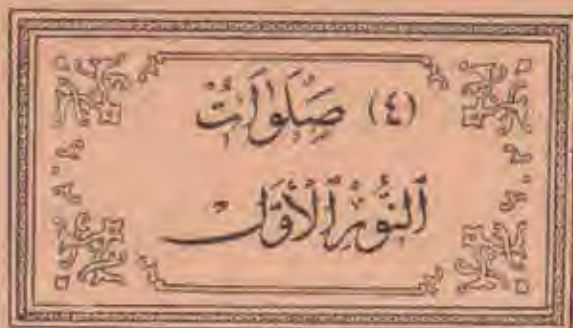 (٤) صَلَوَاتُ
النُّورِ الْأَوَّلِ